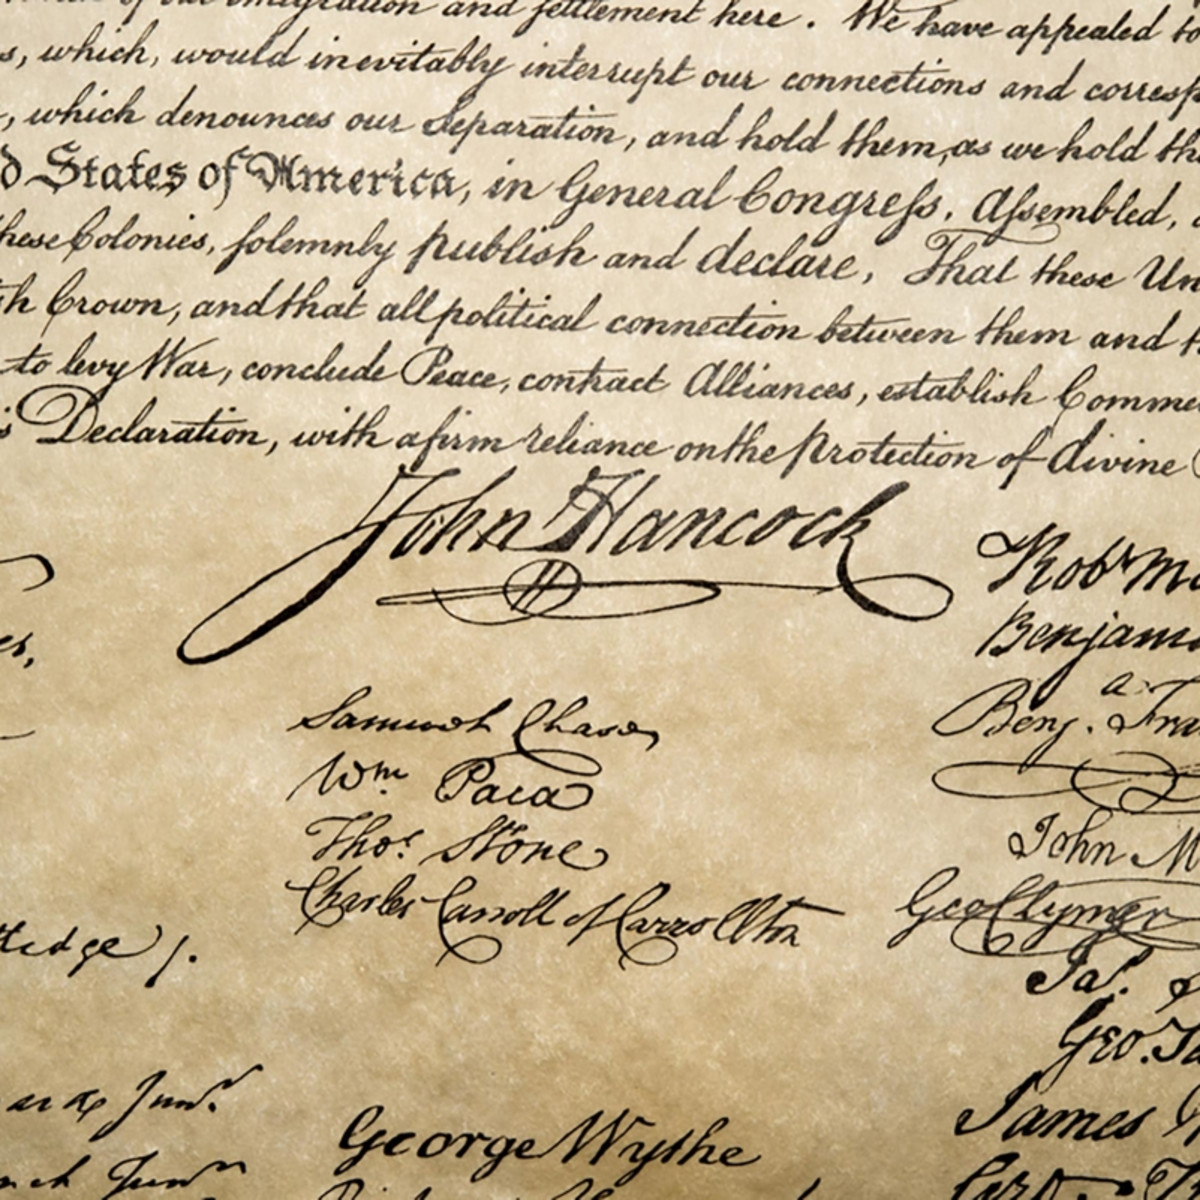 of our emigration and settlement here. We have appealed to
which, would inevitably interrupt our connections and corresp
, which denounces our Separation, and hold them, as we hold th
d States of America, in General Congress, Assembled,
these Colonies, solemnly publish and declare, That these Un
sh Crown, and that all political connection between them and th
to levy War, conclude Peace, contract Alliances, establish Comme
is Declaration, with a firm reliance on the protection of divine
John Hancock
Robt Mo
Benjami
Samuel Chase
Benj. Fra
Wm Paca
Thos. Stone
John M
Charles Carroll of Carrollton
Geo Clymer
tledge jr.
Jas.
Geo. Ta
ard Junr.
James
George Wythe
nch Junr